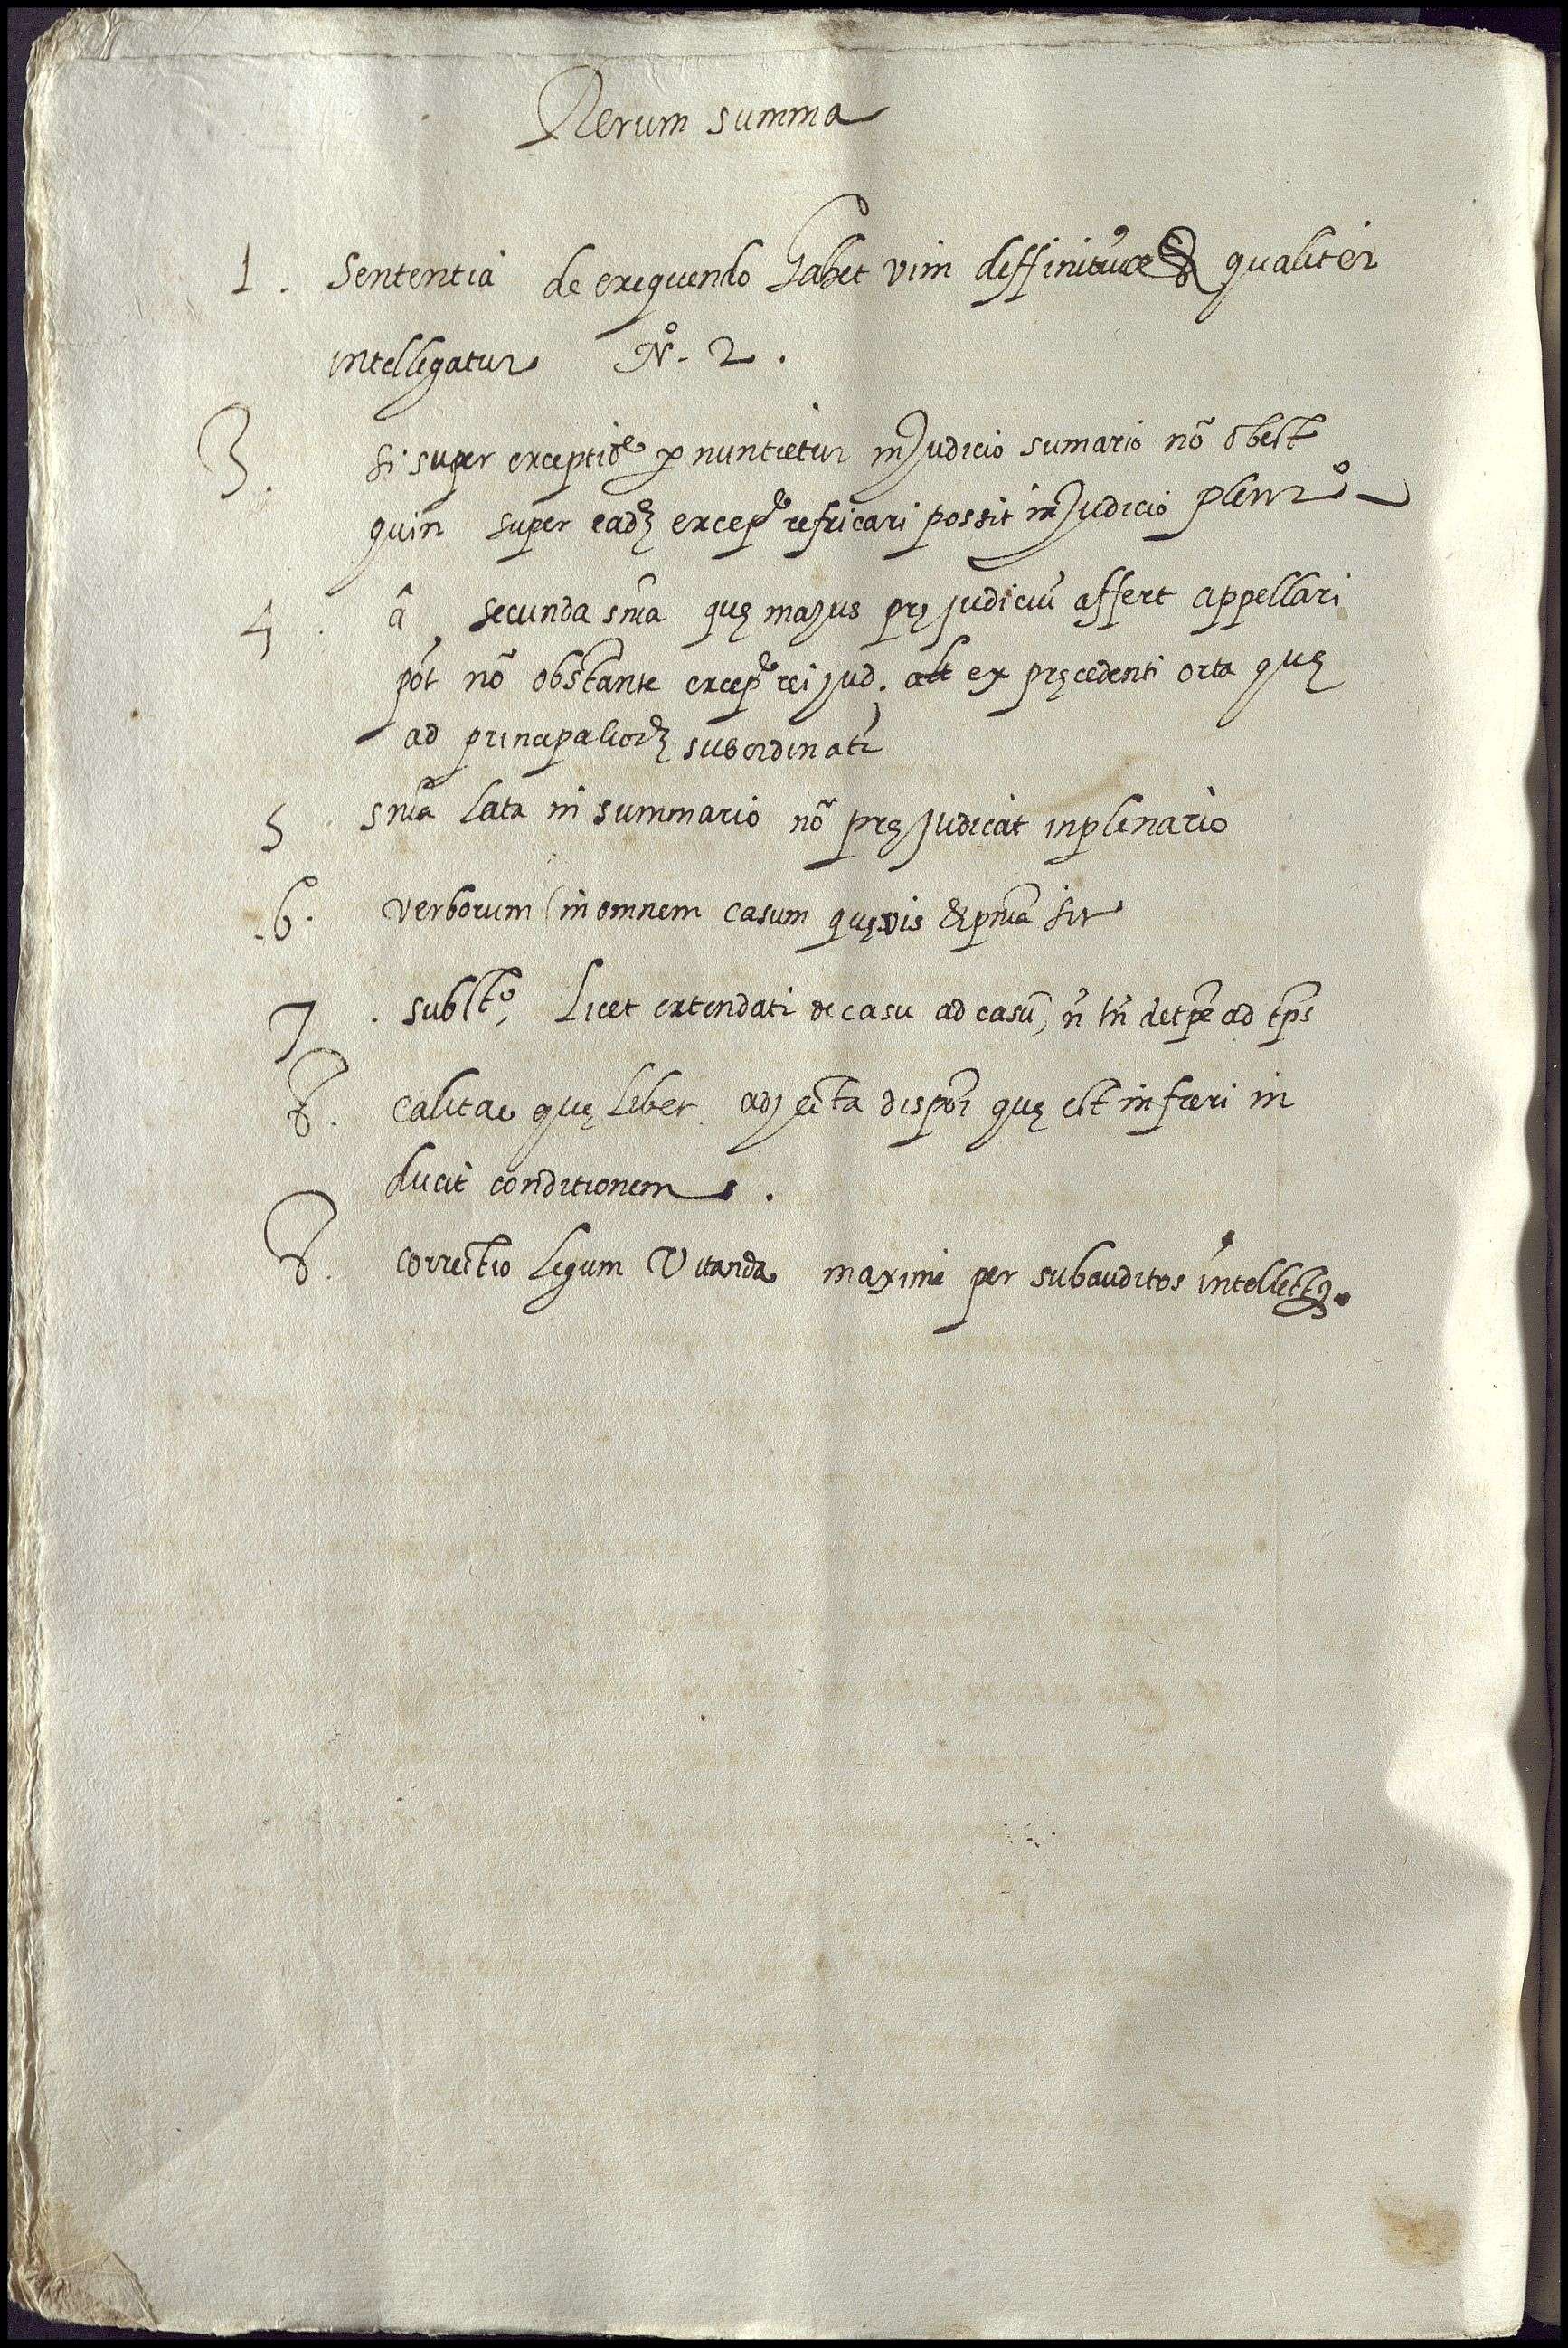 Rerum summa
1. Sententia de exequendo habet vim deffinitivæ & qualiter
intellegatur Nº. 2.
3. si super exceptiõe pnuntietur in Judicio sumario nõ obest
quin super eadẽ excepe refricari possit in Judicio plenrº
4. â secunda snia quę majus pręjudiciũ affert appellari
pót nõ obstante excepe rei jud. ex pręcedenti orta quę
ad principaliorẽ subordinatr
5 snia lata in summario nõ pręjudicat in plenario
.6. verborum (in omnem casum quęvis sit
7. substº, Licet extendatr de casu ad casũ, ñ tñ de tpe ad tps
8. calitae quęlibet adjecta dispoi quę est in fieri in
ducit conditionem.
8. correctio legum Vitanda maxime per subauditos intellectus.